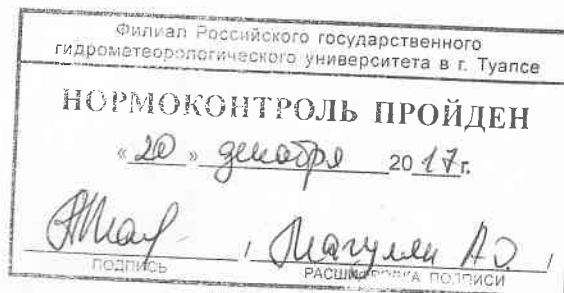 Филиал Российского государственного
гидрометеорологического университета в г. Туапсе
НОРМОКОНТРОЛЬ ПРОЙДЕН
«20» декабря 2017г.
/ А.О. /
ПОДПИСЬ РАСШИФРОВКА ПОДПИСИ